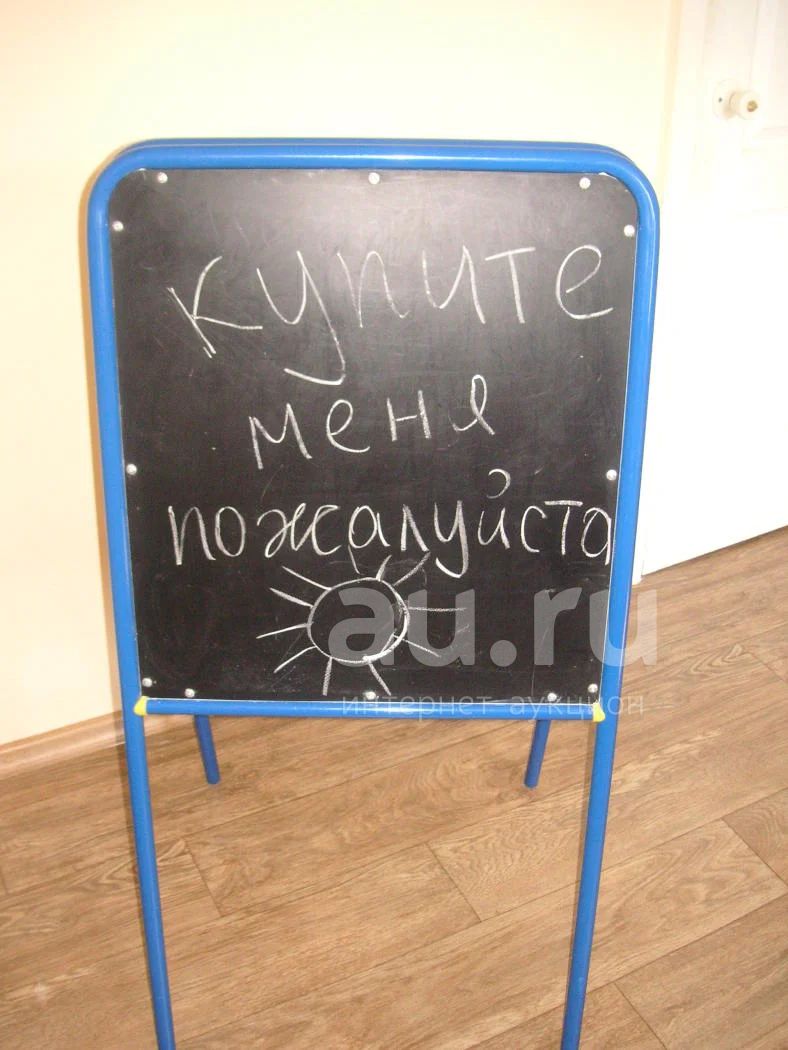 купите
меня
пожалуйста
au.ru
интернет-аукцион